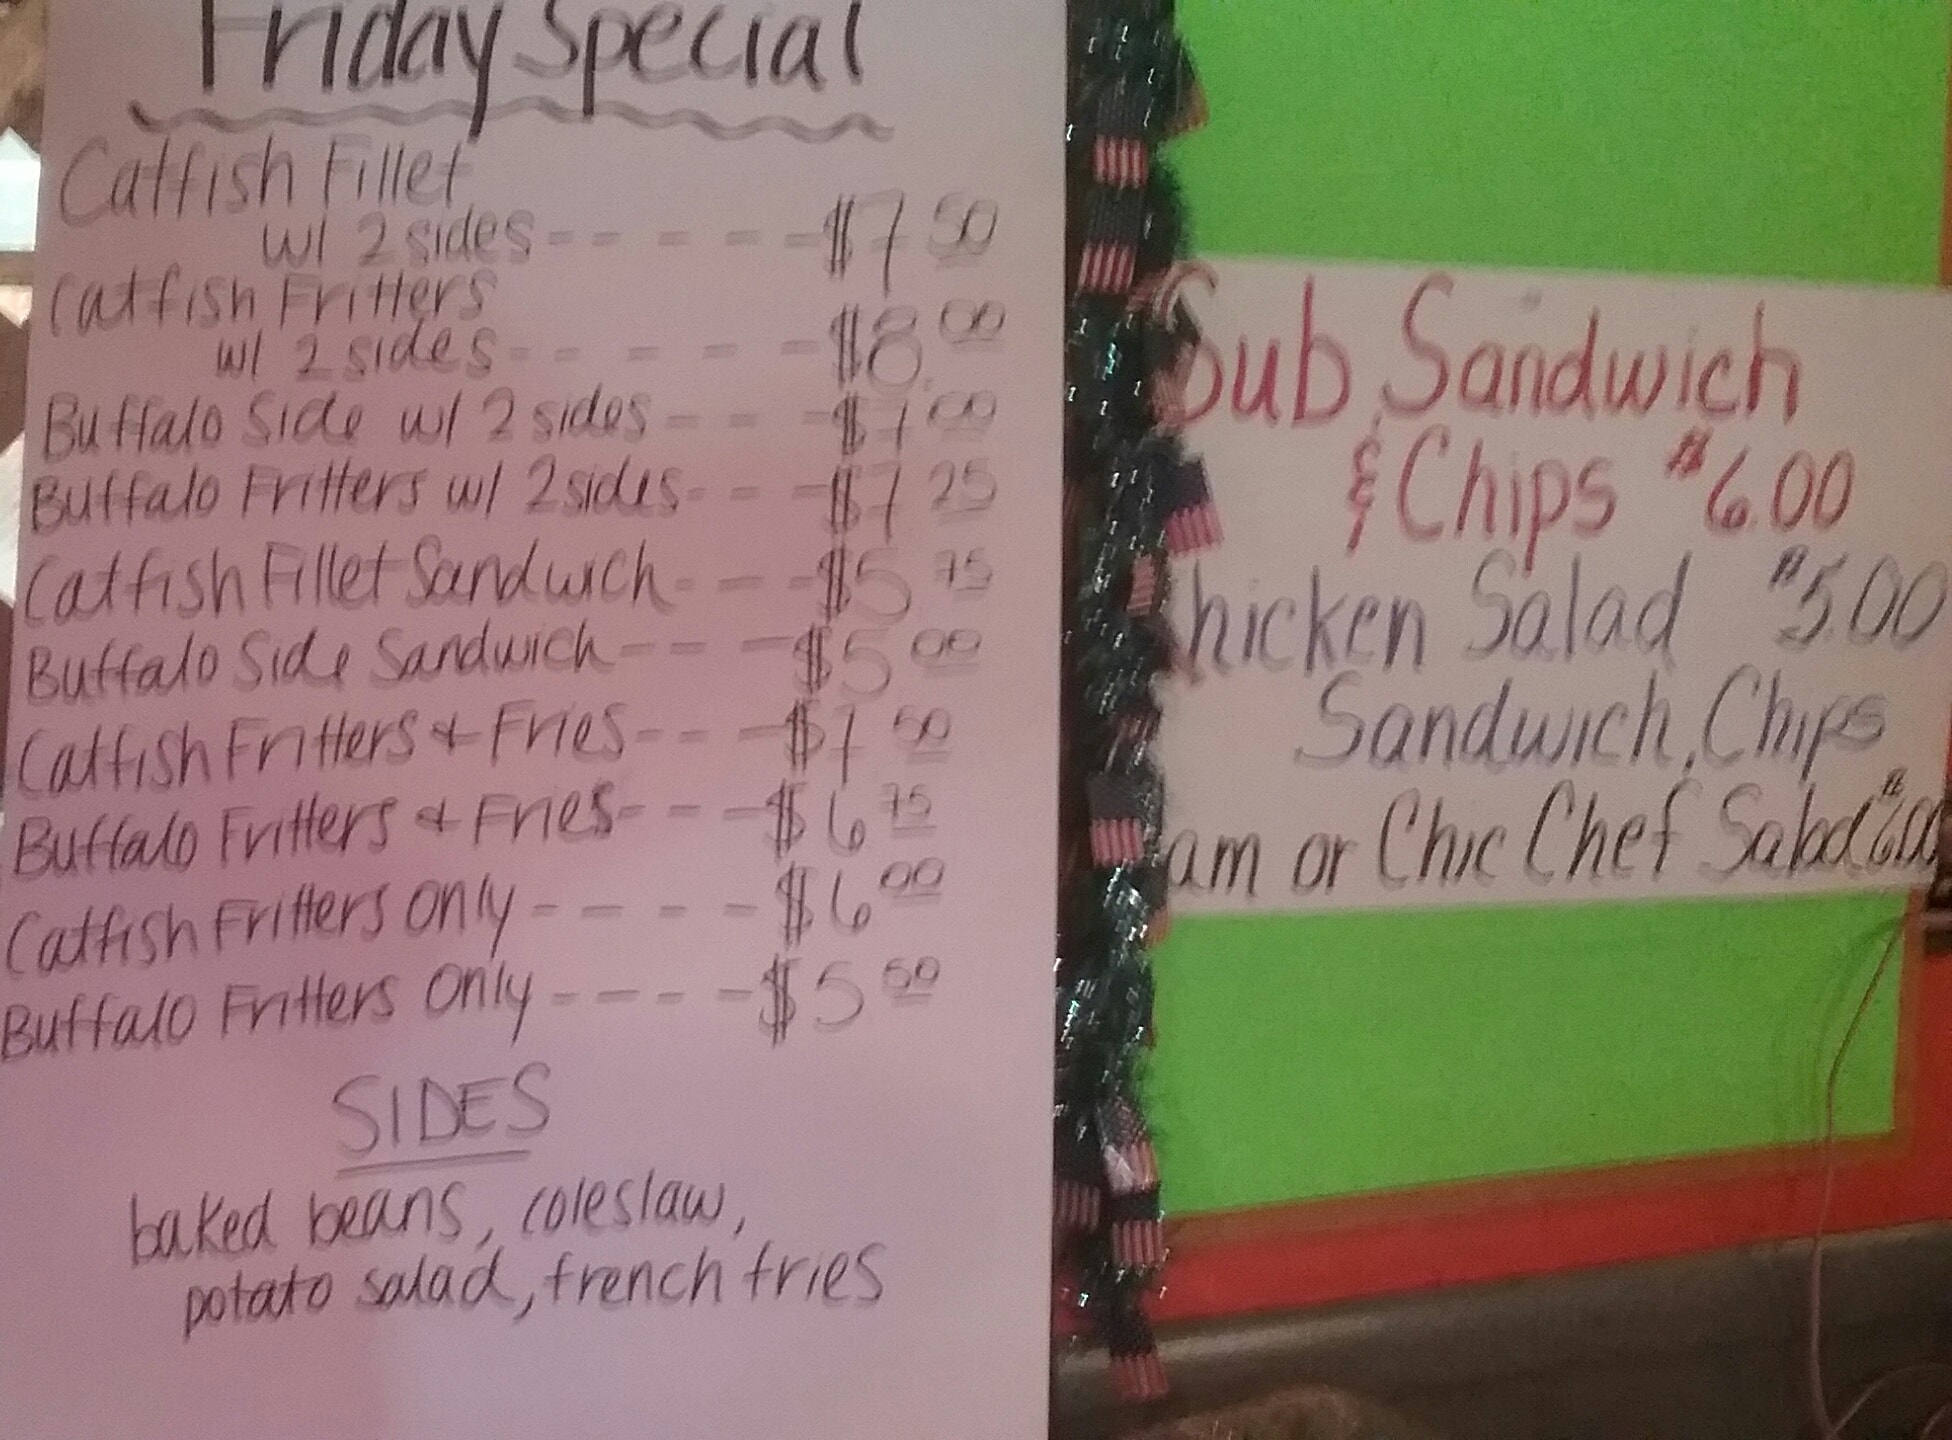 Friday Special
Catfish Fillet
w/ 2 sides - - - - - - $7.50
Catfish Fritters
w/ 2 sides - - - - - - $8.00
Buffalo Side w/ 2 sides - - - $7.00
Buffalo Fritters w/ 2 sides - - - $7.25
Catfish Fillet Sandwich - - - $5.75
Buffalo Side Sandwich - - - $5.00
Catfish Fritters & Fries - - - $7.50
Buffalo Fritters & Fries - - - $6.75
Catfish Fritters Only - - - - - $6.00
Buffalo Fritters Only - - - - - $5.50
SIDES
baked beans, coleslaw,
potato salad, french fries
Sub Sandwich
& Chips $6.00
hicken Salad $5.00
Sandwich, Chips
am or Chic Chef Salad $6.00